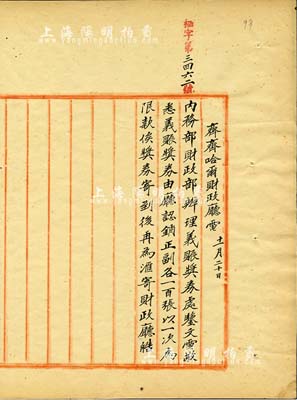 99
上海陽明拍賣
Yangming Auction
栖字第三四六二號
齊齊哈爾財政廳電 十一月二十日
內務部財政部辦理義賑獎券處鑒文電敬
悉義賑獎券由廳認銷正副各一百張以一次為
限款俟獎券寄到後再為滙寄財政廳
上海陽明拍賣
Yangming Auction